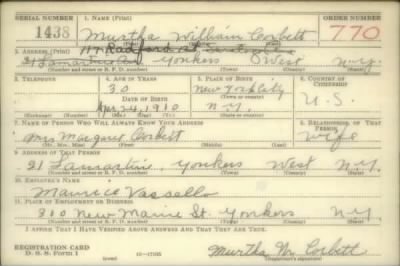 SERIAL NUMBER 1. NAME (Print) ORDER NUMBER
1438 Murtha William Corbett 770
2. ADDRESS (Print) 117 Radford St.
21 Lamartine Av Yonkers West N.Y.
(Number and street or R. F. D. number) (Town) (County) (State)
3. TELEPHONE 4. AGE IN YEARS 5. PLACE OF BIRTH 6. COUNTRY OF CITIZENSHIP
30 New York City
DATE OF BIRTH (Town or county) U.S.
Apr 24, 1910 N.Y.
(Exchange) (No.) (Mo.) (Day) (Yr.) (State or country)
7. NAME OF PERSON WHO WILL ALWAYS KNOW YOUR ADDRESS 8. RELATIONSHIP OF THAT PERSON
Mrs Margaret Corbett Wife
(Mr., Mrs., Miss) (First) (Middle) (Last)
9. ADDRESS OF THAT PERSON
21 Lamartine, Yonkers West N.Y.
(Number and street or R. F. D. number) (Town) (County) (State)
10. EMPLOYER'S NAME
Maurice Vassello
11. PLACE OF EMPLOYMENT OR BUSINESS
210 New Maine St. Yonkers N.Y.
(Number and street or R. F. D. number) (Town) (County) (State)
I AFFIRM THAT I HAVE VERIFIED ABOVE ANSWERS AND THAT THEY ARE TRUE.
REGISTRATION CARD
D. S. S. FORM 1 (over) 16-17105 Murtha Wm Corbett
(Registrant's signature)